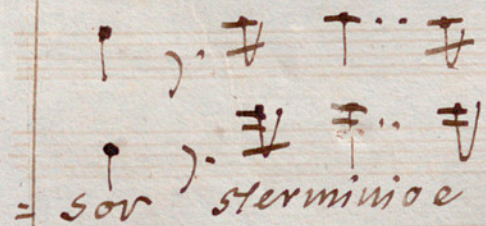 = sor sterminio e